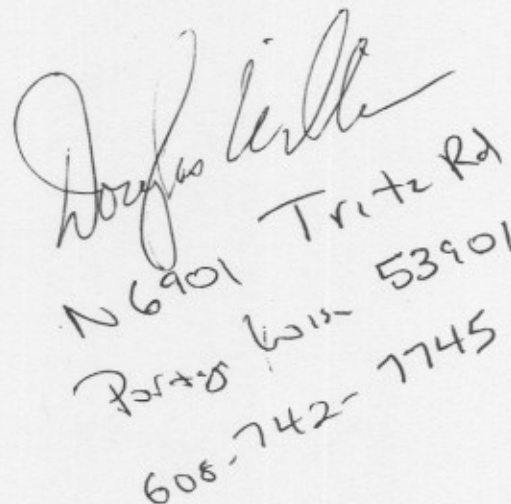 Douglas
N6901 Tritz Rd
Portage Wisn 53901
608-742-7745